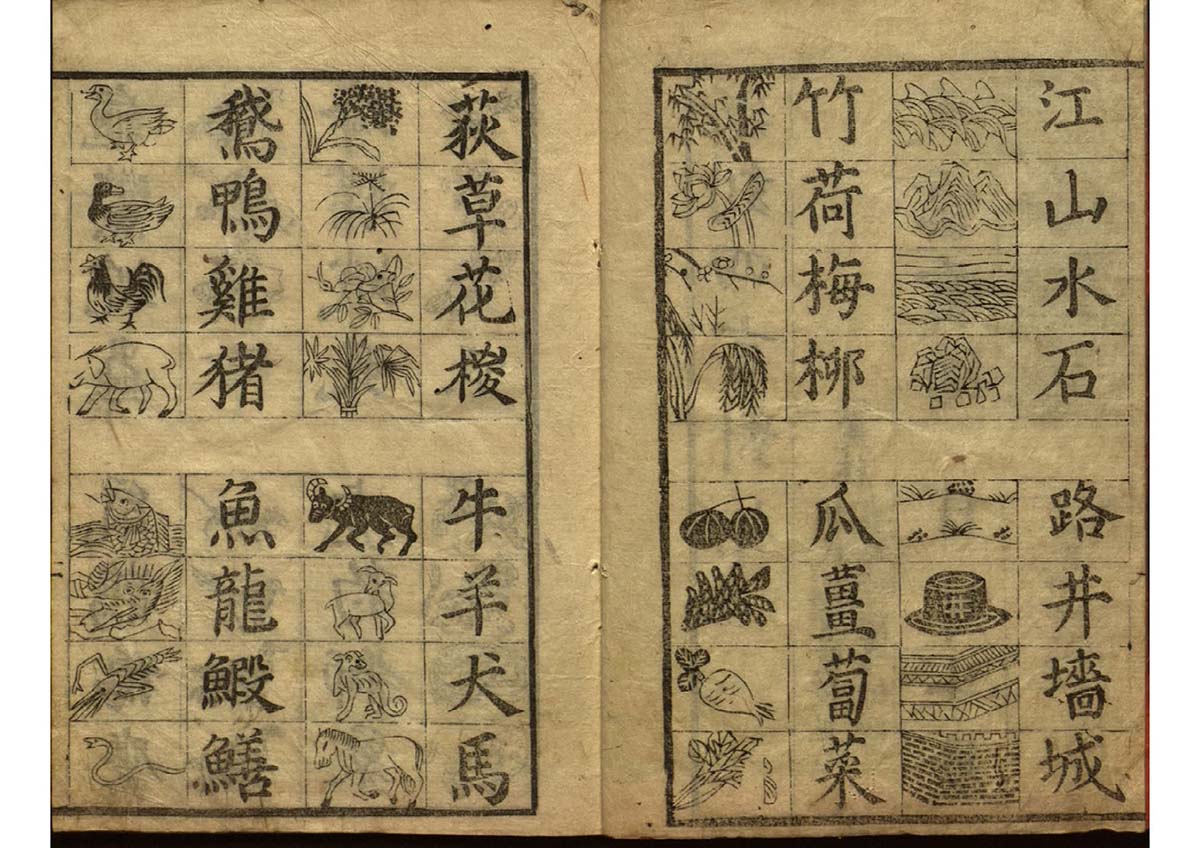 江山水石
竹荷梅柳
路井墻城
瓜薑蔔菜
荻草花椶
鵝鴨雞猪
牛羊犬馬
魚龍鰕鱔